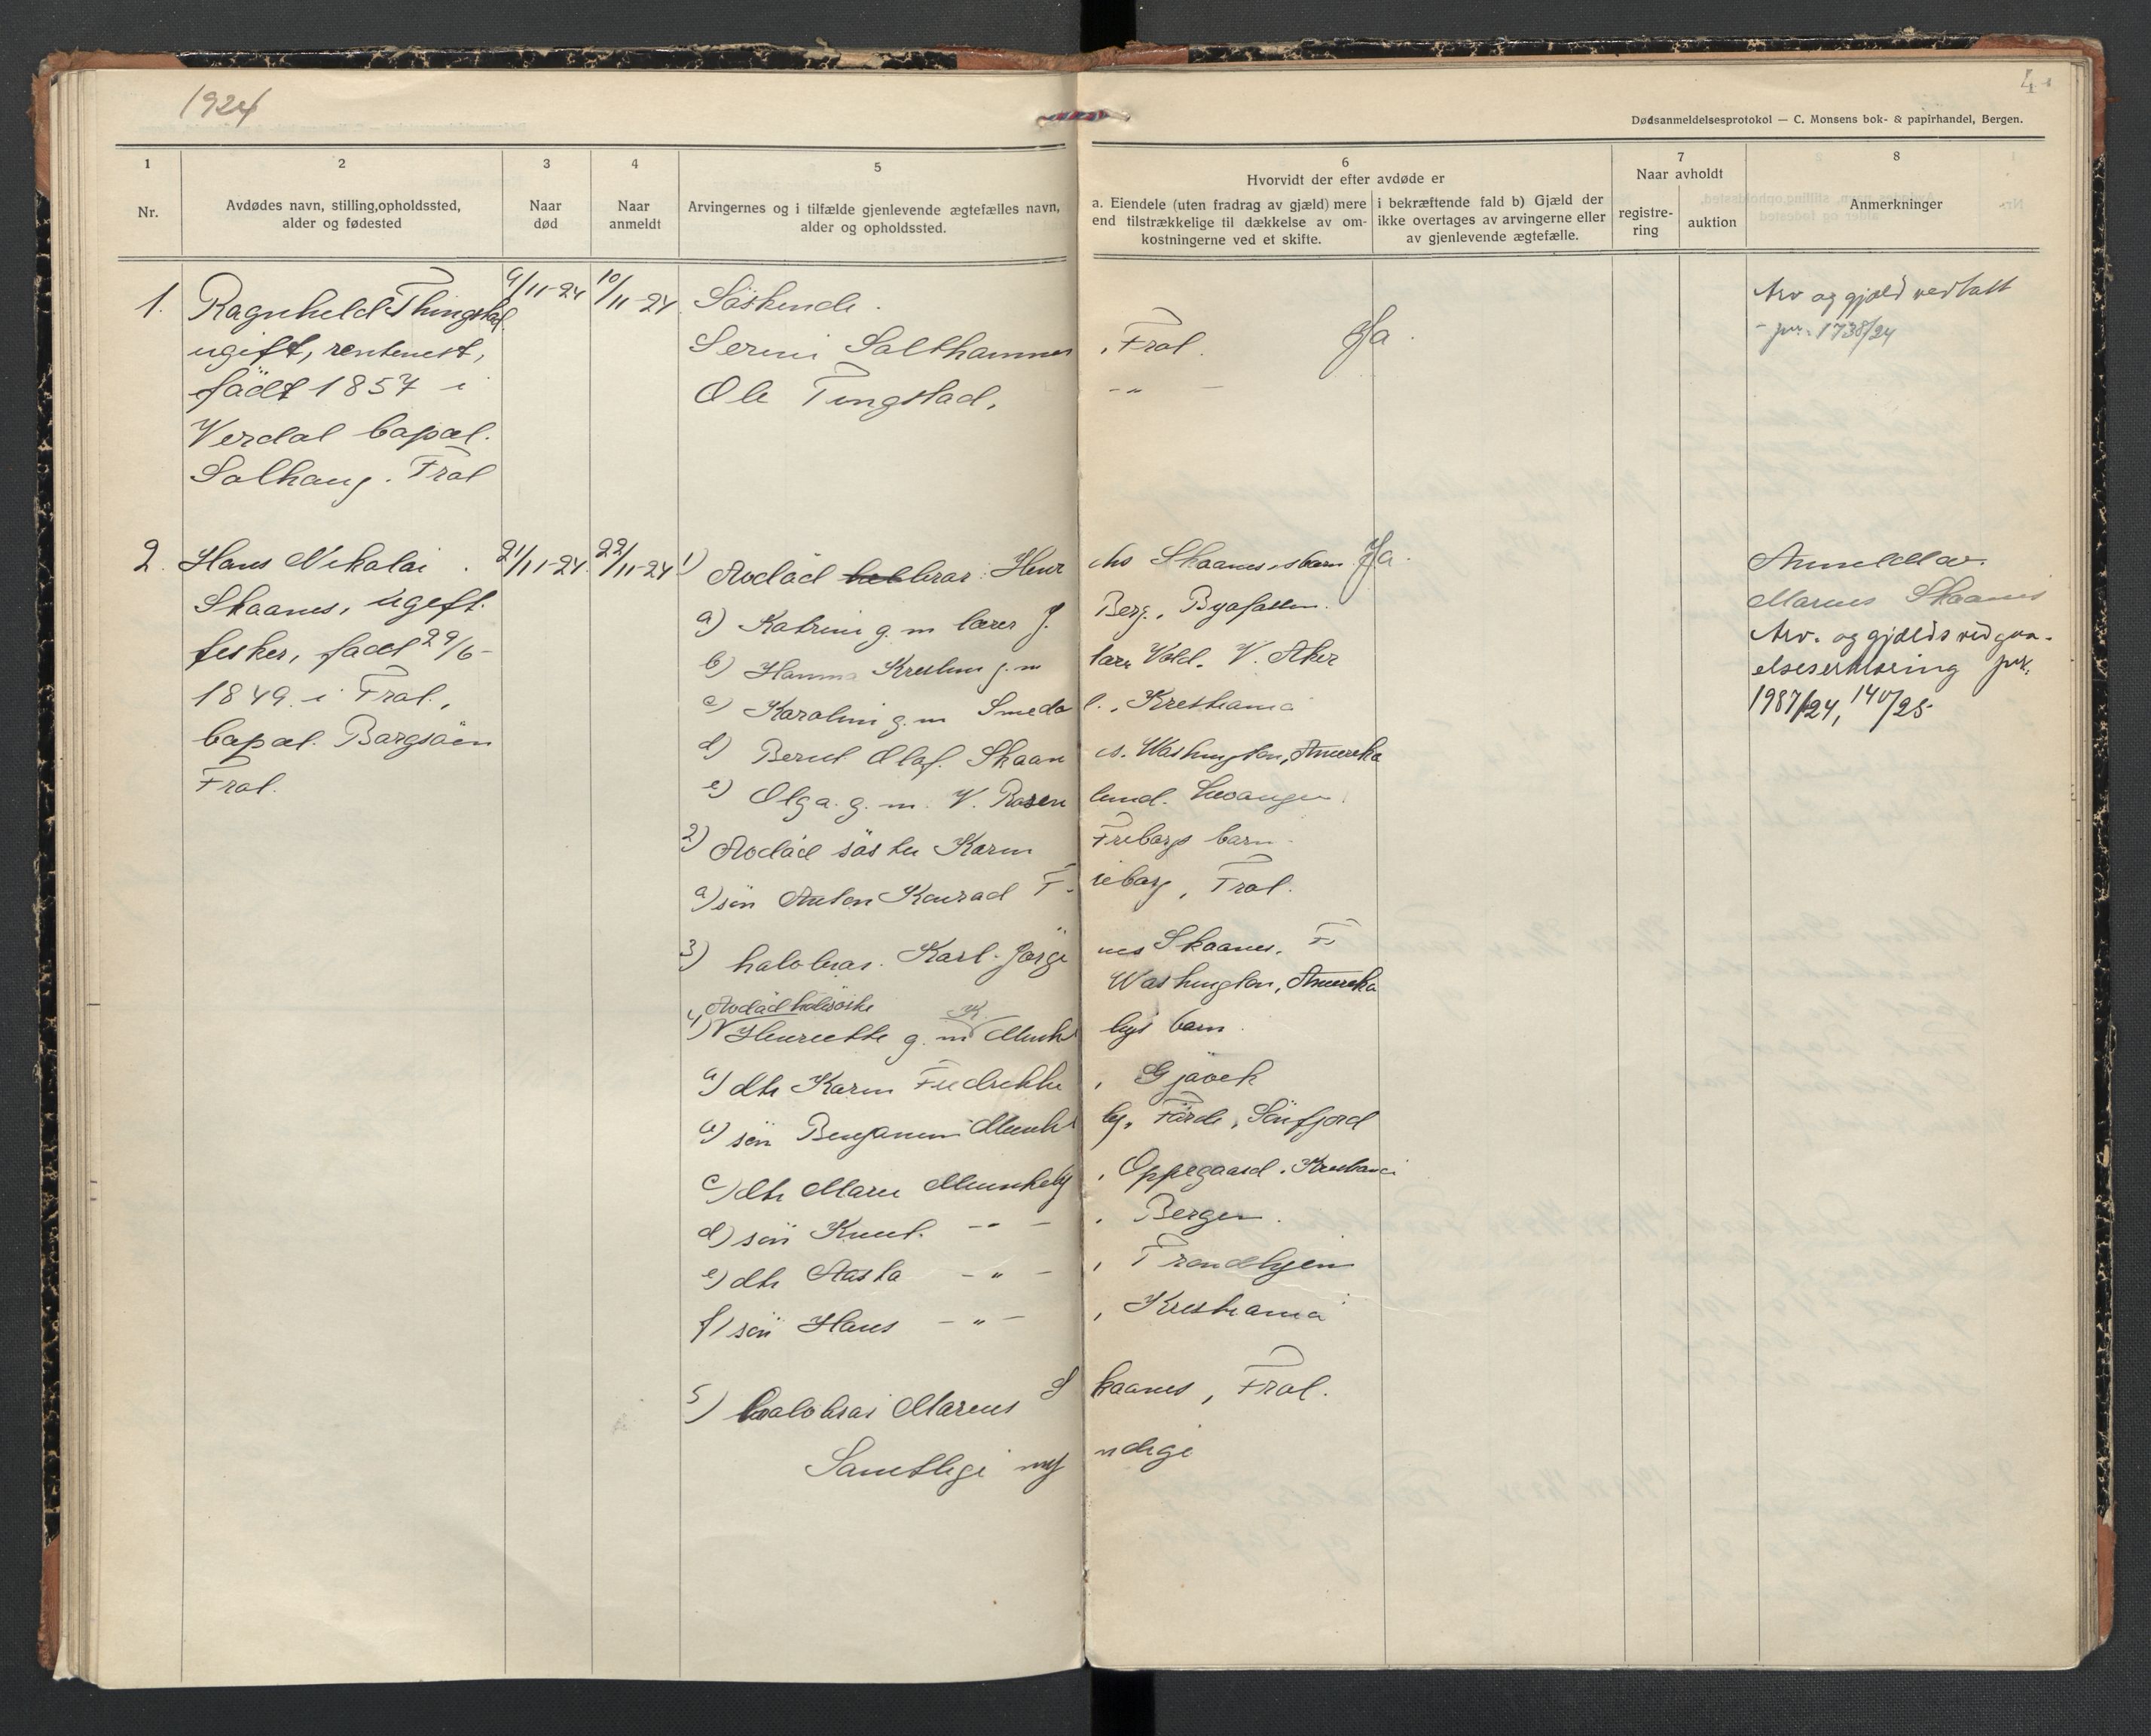 1924
4
Dødsanmeldelsesprotokol — C. Monsens bok- & papirhandel, Bergen.
1
Nr.
2
Avdødes navn, stilling, opholdssted,
alder og fødested
3
Naar
død
4
Naar
anmeldt
5
Arvingernes og i tilfælde gjenlevende ægtefælles navn,
alder og opholdssted.
6
Hvorvidt der efter avdøde er
a. Eiendele (uten fradrag av gjæld) mere
end tilstrækkelige til dækkelse av om-
kostningerne ved et skifte.
i bekræftende fald b) Gjæld der
ikke overtages av arvingerne eller
av gjenlevende ægtefælle.
7
Naar avholdt
registre-
ring
auktion
8
Anmerkninger
1.
Ragnhild Thingstad
ugift, rentenist,
födt 1857 i
Verdal bopæl.
Solhaug. Frol
9/11-24
10/11-24
Söskende.
Serine Salthammer, Frol.
Ole Tingstad, -"-
Ja.
Arv og gjæld vedtatt
- jnr. 1738/24
2.
Hans Nikolai
Skaanes, ugift.
fisker, född 29/6-
1849 i Frol.,
bopæl. Borgsåen
Frol.
21/11-24
22/11-24
1) Avdöd halvbror: Henr iks Skaanes's barn
Ja.
a) Katrine g. m lærer J. Berg, Byafossen.
b) Hanna Kristine g. m lærer Vold. V. Aker
c) Karoline g. m Smeda l., Kristiania
d) Bernt Olaf. Skaan es. Washington, Amerika
e) Olga. g. m. V. Rosen lund. Levanger.
2) Avdöd söster Karen Friborgs barn
a) sön Anton Konrad F- ieborg, Frol.
3) halvbror. Karl. Jörge nes Skaanes. Ft
Washington, Amerika
4) Avdöd halvsöster
Henriette g. m K. Munke bys barn.
a) dtr Karen Fredrikke, Gjövik
b) sön Benjamin Munke by, Förde, Sönfjord
c) dtr Marie Munkeby, Oppegaard. Kristiania
d) sön Knut. -"-, Bergen.
e) dtr Aasta -"-, Trondhjem
f) sön Hans -"-, Kristiania
5) halvbror Marius S kaanes, Frol.
Samtlige my ndige
Anmeldt av.
Marius Skaanes
Arv. og gjælds vedgaa-
elseserklæring jnr.
1987/24, 140/25